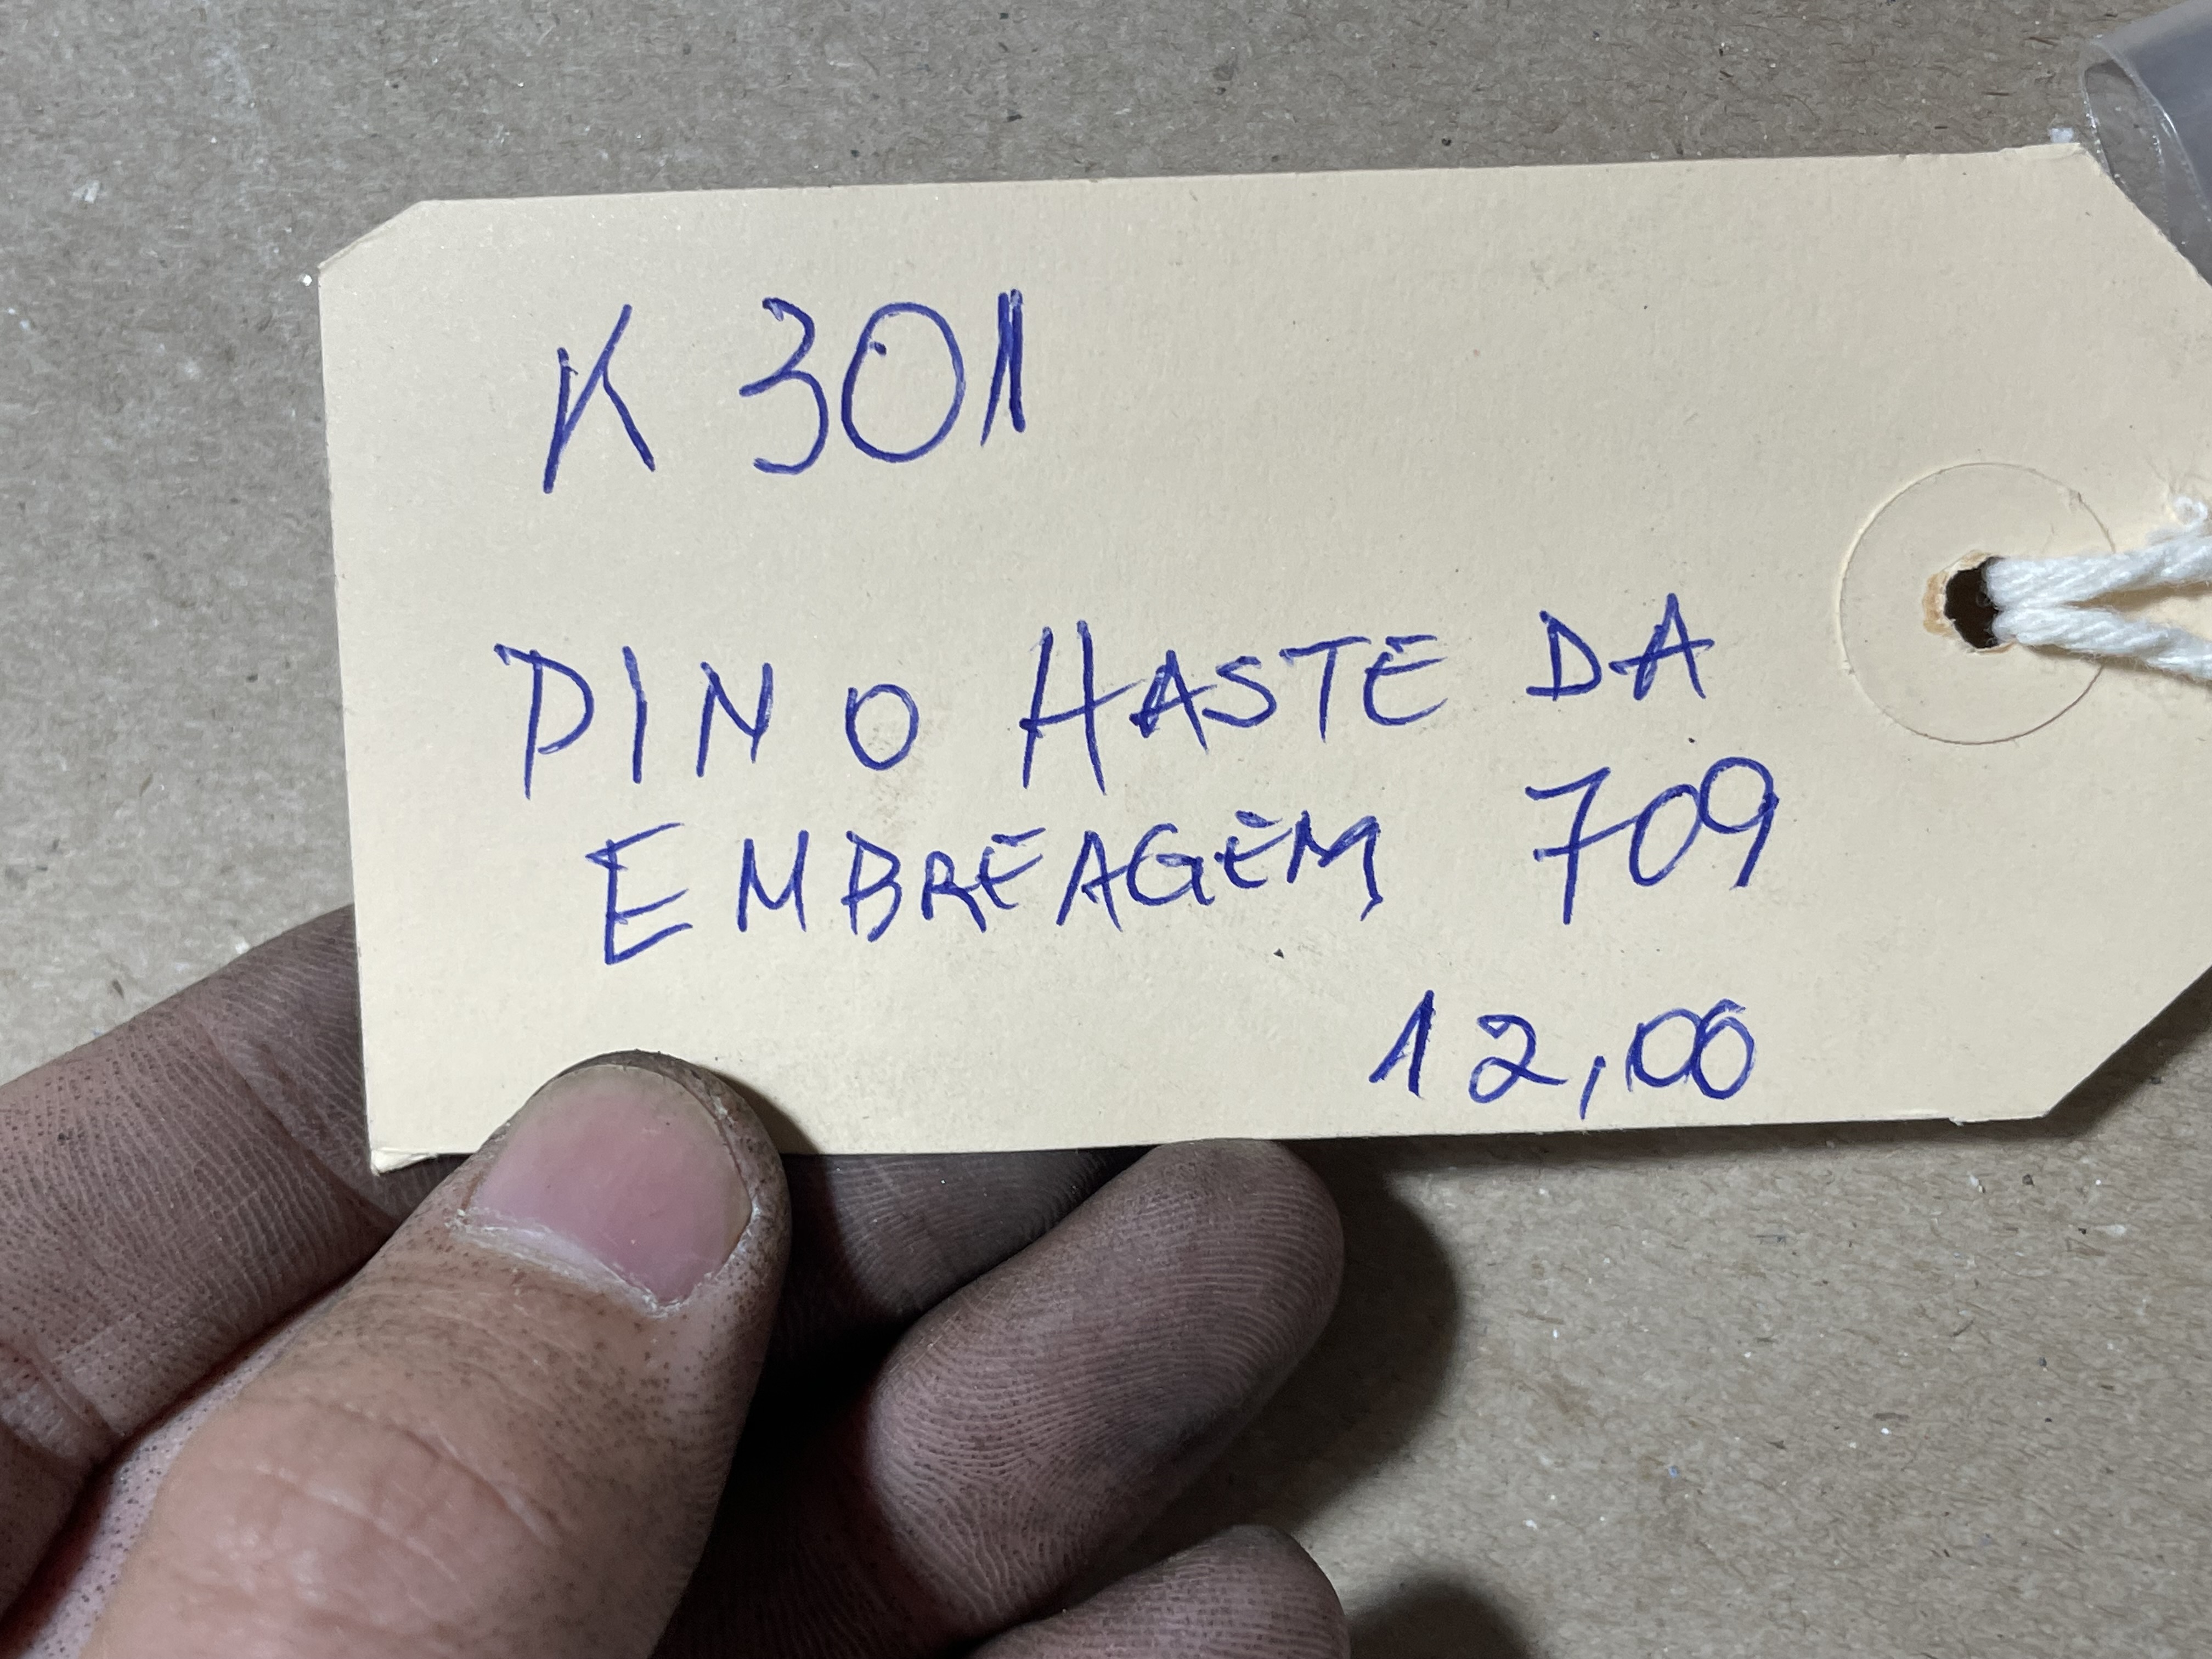 K 301
PINO HASTE DA
EMBREAGEM 709
12,06